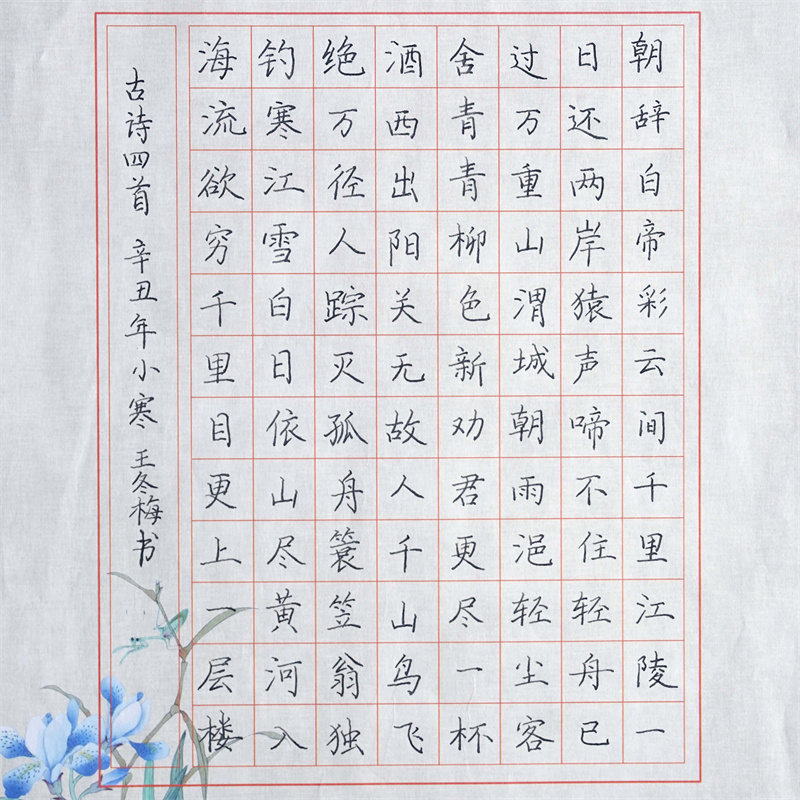 朝辞白帝彩云间千里江陵一
日还两岸猿声啼不住轻舟已
过万重山渭城朝雨浥轻尘客
舍青青柳色新劝君更尽一杯
酒西出阳关无故人千山鸟飞
绝万径人踪灭孤舟簑笠翁独
钓寒江雪白日依山尽黄河入
海流欲穷千里目更上一层楼
古诗四首 辛丑年小寒 王冬梅书